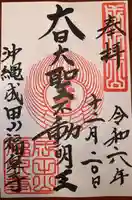 奉拝
令和六年
十一月二〇日
大日大聖不動明王
沖縄成田山福泉寺